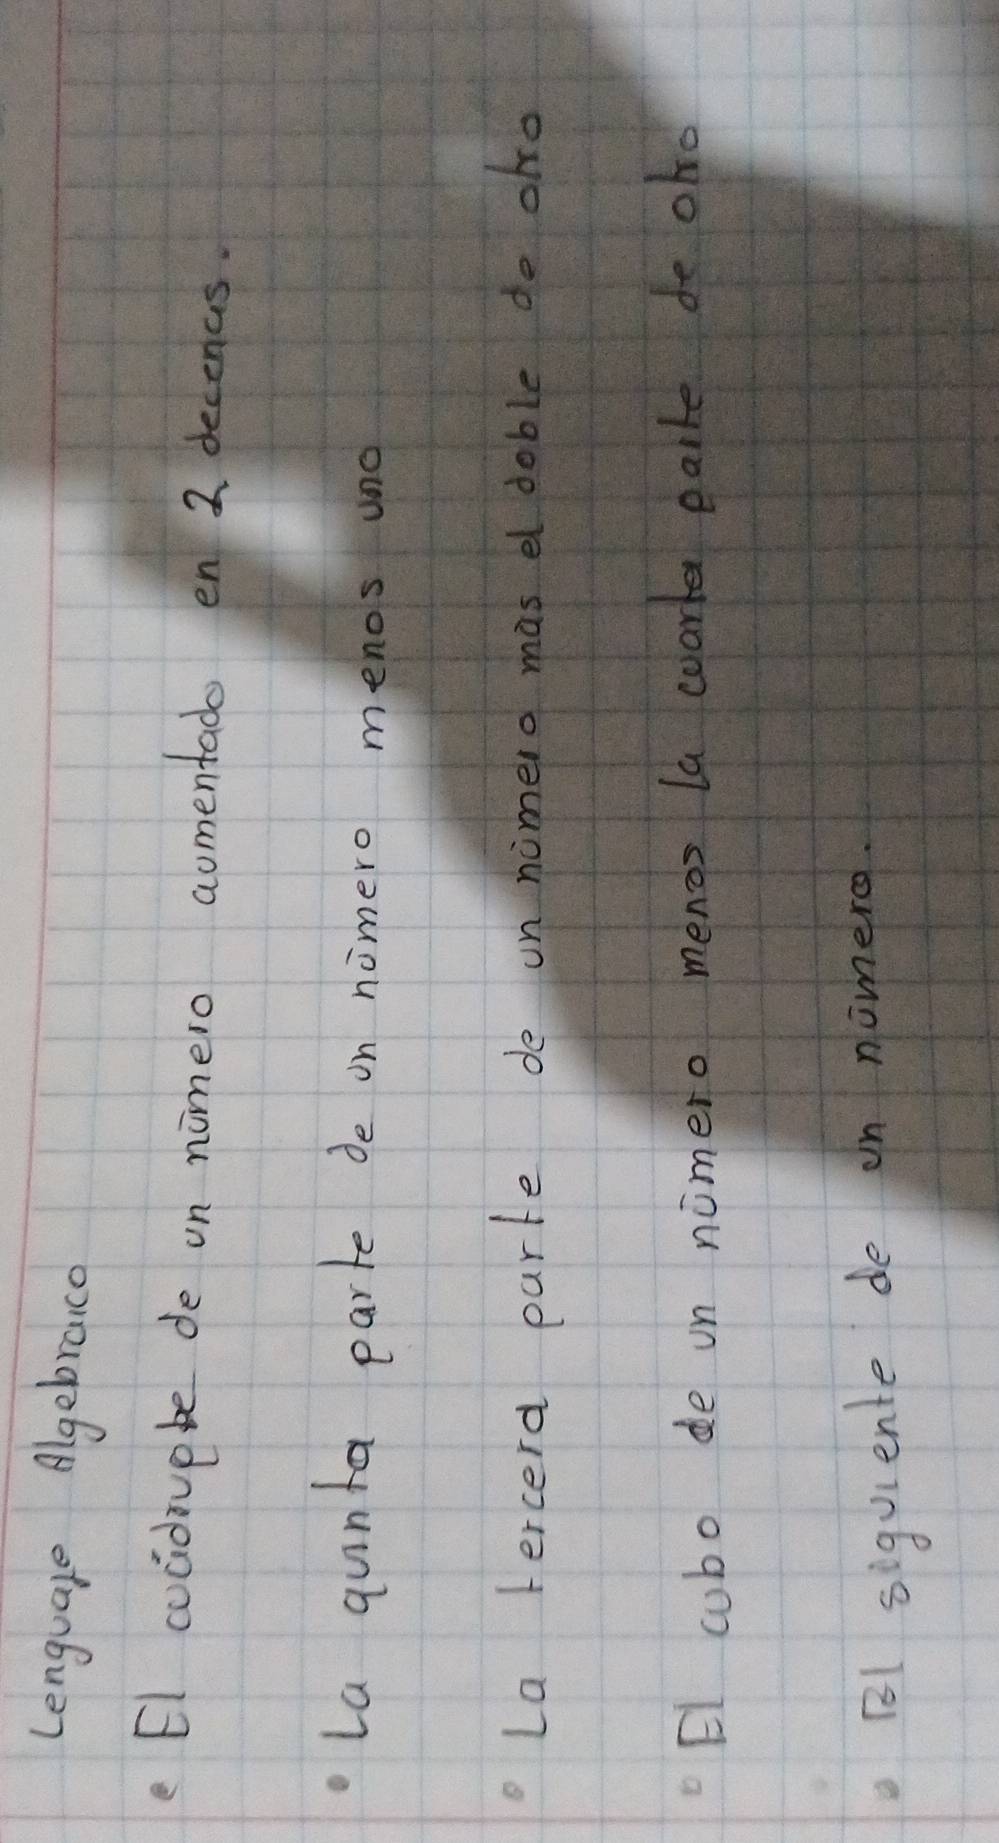 Lenguaje Algebraico
• El cuádruple de un número aumentado en 2 decenas.
• La quinta parte de un número menos uno
• La tercera parte de un número más el doble de otro
• El cubo de un número menos la cuarta parte de otro
• El siguiente de un número.